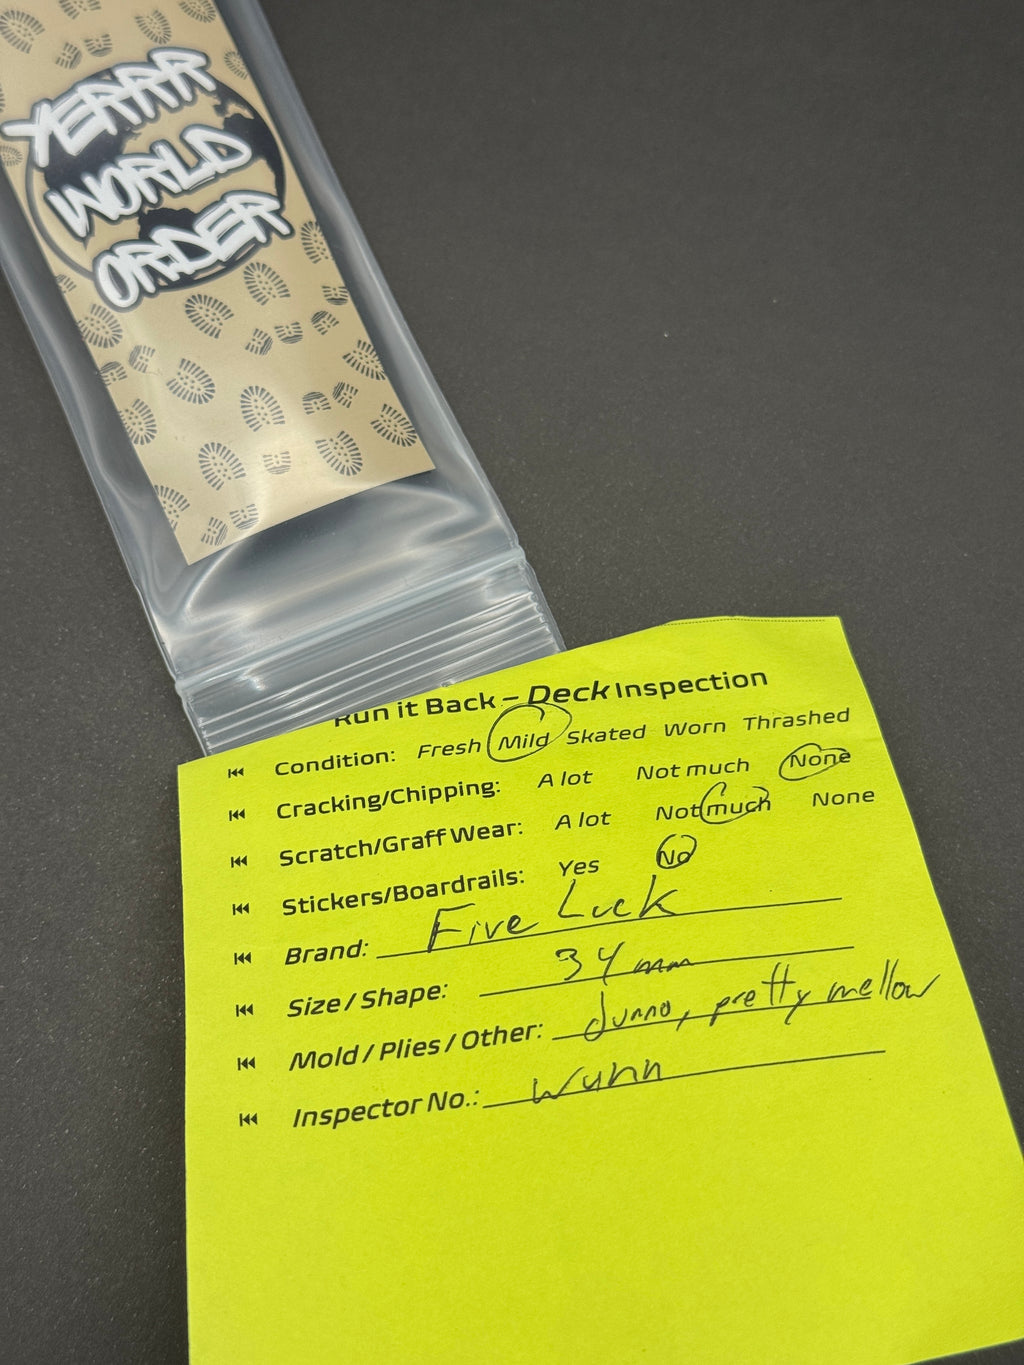 YERRR
WORLD
ORDER
Run it Back – Deck Inspection
Condition: Fresh Mild Skated Worn Thrashed
Cracking/Chipping: A lot Not much None
Scratch/Graff Wear: A lot Not much None
Stickers/Boardrails: Yes No
Brand: Five Luck
Size / Shape: 34 mm
Mold / Plies / Other: dunno, pretty mellow
Inspector No.: Wunn